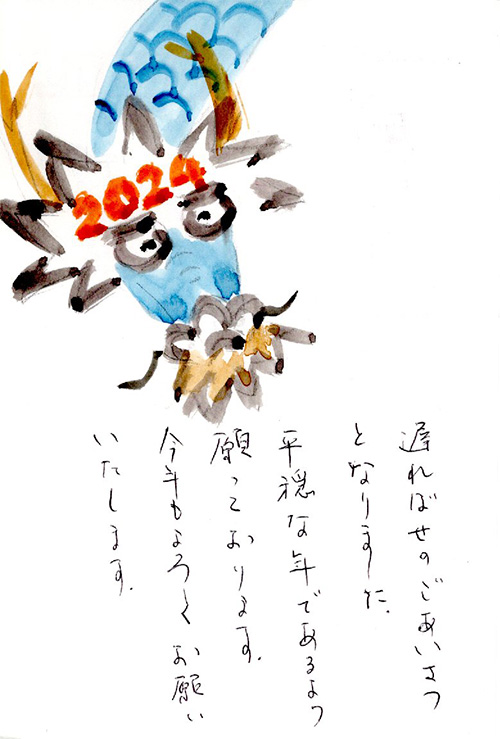 2024
遅ればせのごあいさつ
となりました.
平穏な年であるよう
願っております.
今年もよろしくお願い
いたします.